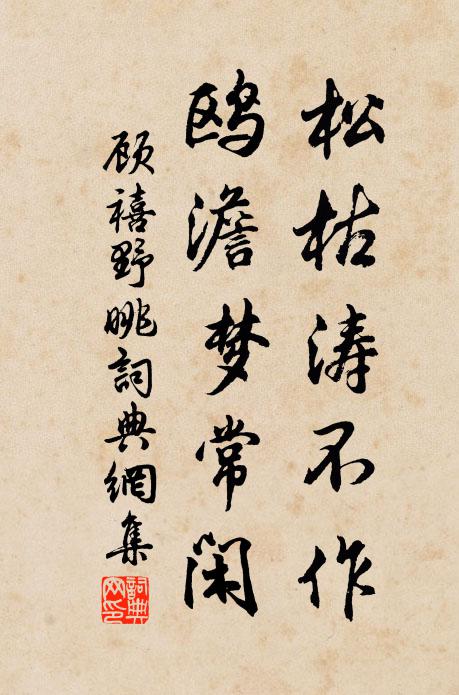 松枯涛不作
鸥澹梦常闲
顾禧野眺詞典網集
詞典网印